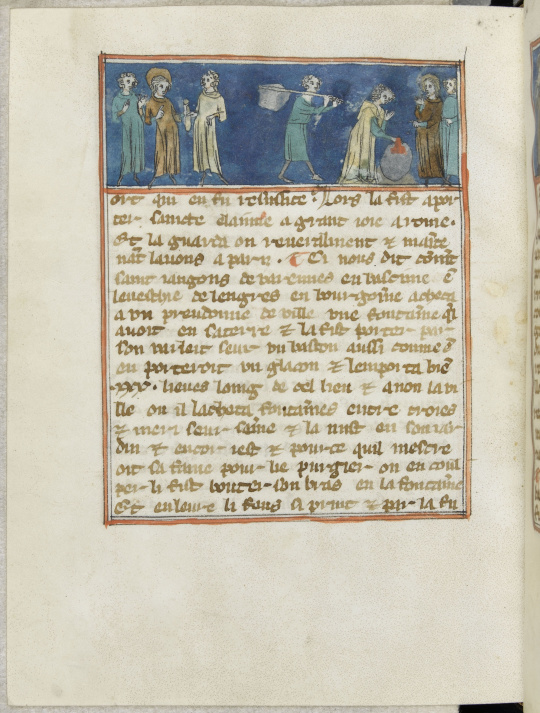 ort qui en fu resuscite. Lors la fist apor
ter saincte elainne a grant ioie a rome.
Et la guarda on reueraument & mainte
nant lauons a paris. Ci nous dit coment
saint iangons de varennes en bassine e
leueschie de lengres en bourgoine acheta
a un preudonme de ville vne fontaine qi
auoit en sa terre & la fist porter par
son vallet seur un baston aussi comme
on porteroit un glacon & lemporta bie
xxx. lieues loing de cel lieu & a non la vi
lle ou il lacheta fontaines entre troies
& meri seur saine & la mist en son iar
din & encor iest & pour ce quil mescre
oit sa fame pour lie purgier on en conseil
li fist bouter son bras en la fontaine
Et en leure li feus sa prinst & par la fu